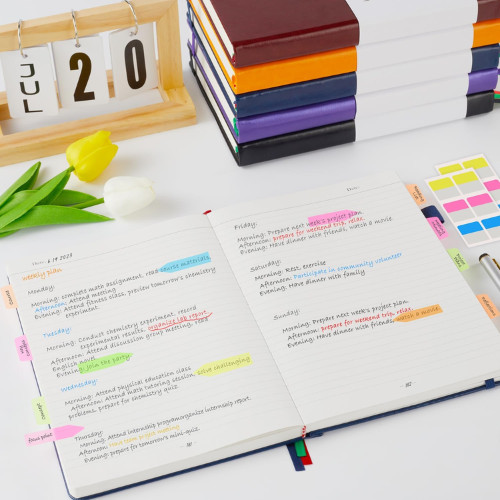 JUL 20
Date: 6.19.2023
weekly plan
Monday:
Morning: complete math assignment, read course materials
Afternoon: Attend meeting
Evening: Attend fitness class, preview tomorrow's chemistry
experiment.
Tuesday:
Morning: Conduct chemistry experiment, record
experimental results, organize lab report.
Afternoon: Attend discussion group meeting, read
English novel.
Evening: Join the party
Wednesday:
Morning: Attend physical education class
Afternoon: Attend math tutoring session, solve challenging
problems, prepare for chemistry quiz.
Thursday:
Morning: Attend internship program organize internship report.
Afternoon: Have team project meeting
Evening: prepare for tomorrow's mini-quiz.
Friday:
Morning: Prepare next week's project plan
Afternoon: prepare for weekend trip, relax.
Evening: Have dinner with friends, watch a movie.
Saturday:
Morning: Rest, exercise
Afternoon: Participate in community volunteer
Evening: Have dinner with family
Sunday:
Morning: Prepare next week's project plan
Afternoon: prepare for weekend trip, relax.
Evening: Have dinner with friends, watch a movie